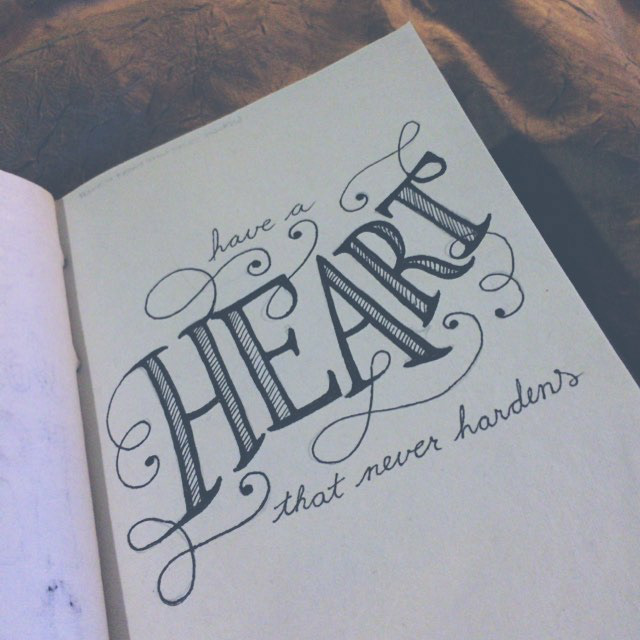 have a
HEART
that never hardens